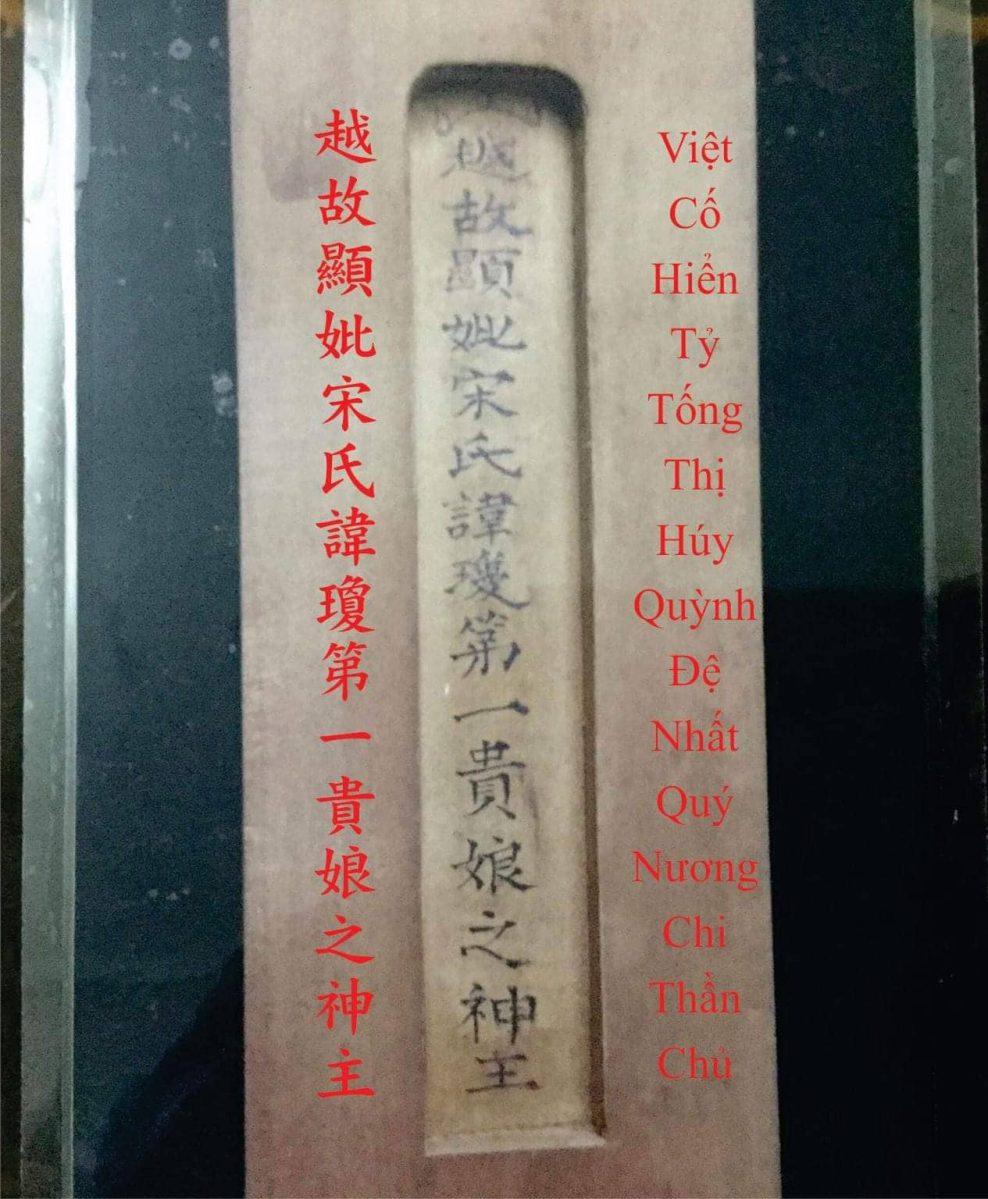 越故顯妣宋氏諱瓊第一貴娘之神主
越故顯妣宋氏諱瓊第一貴娘之神主
Việt
Cố
Hiển
Tỷ
Tống
Thị
Húy
Quỳnh
Đệ
Nhất
Quý
Nương
Chi
Thần
Chủ